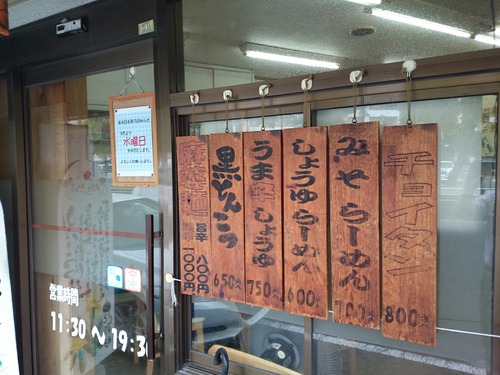 水曜日
営業時間
11:30～19:30
黒とんこつ
650
うま辛しょうゆ
750
しょうゆらーめん
600
みそらーめん
700
チョイタン
800
旨辛
八〇〇円
一〇〇〇円